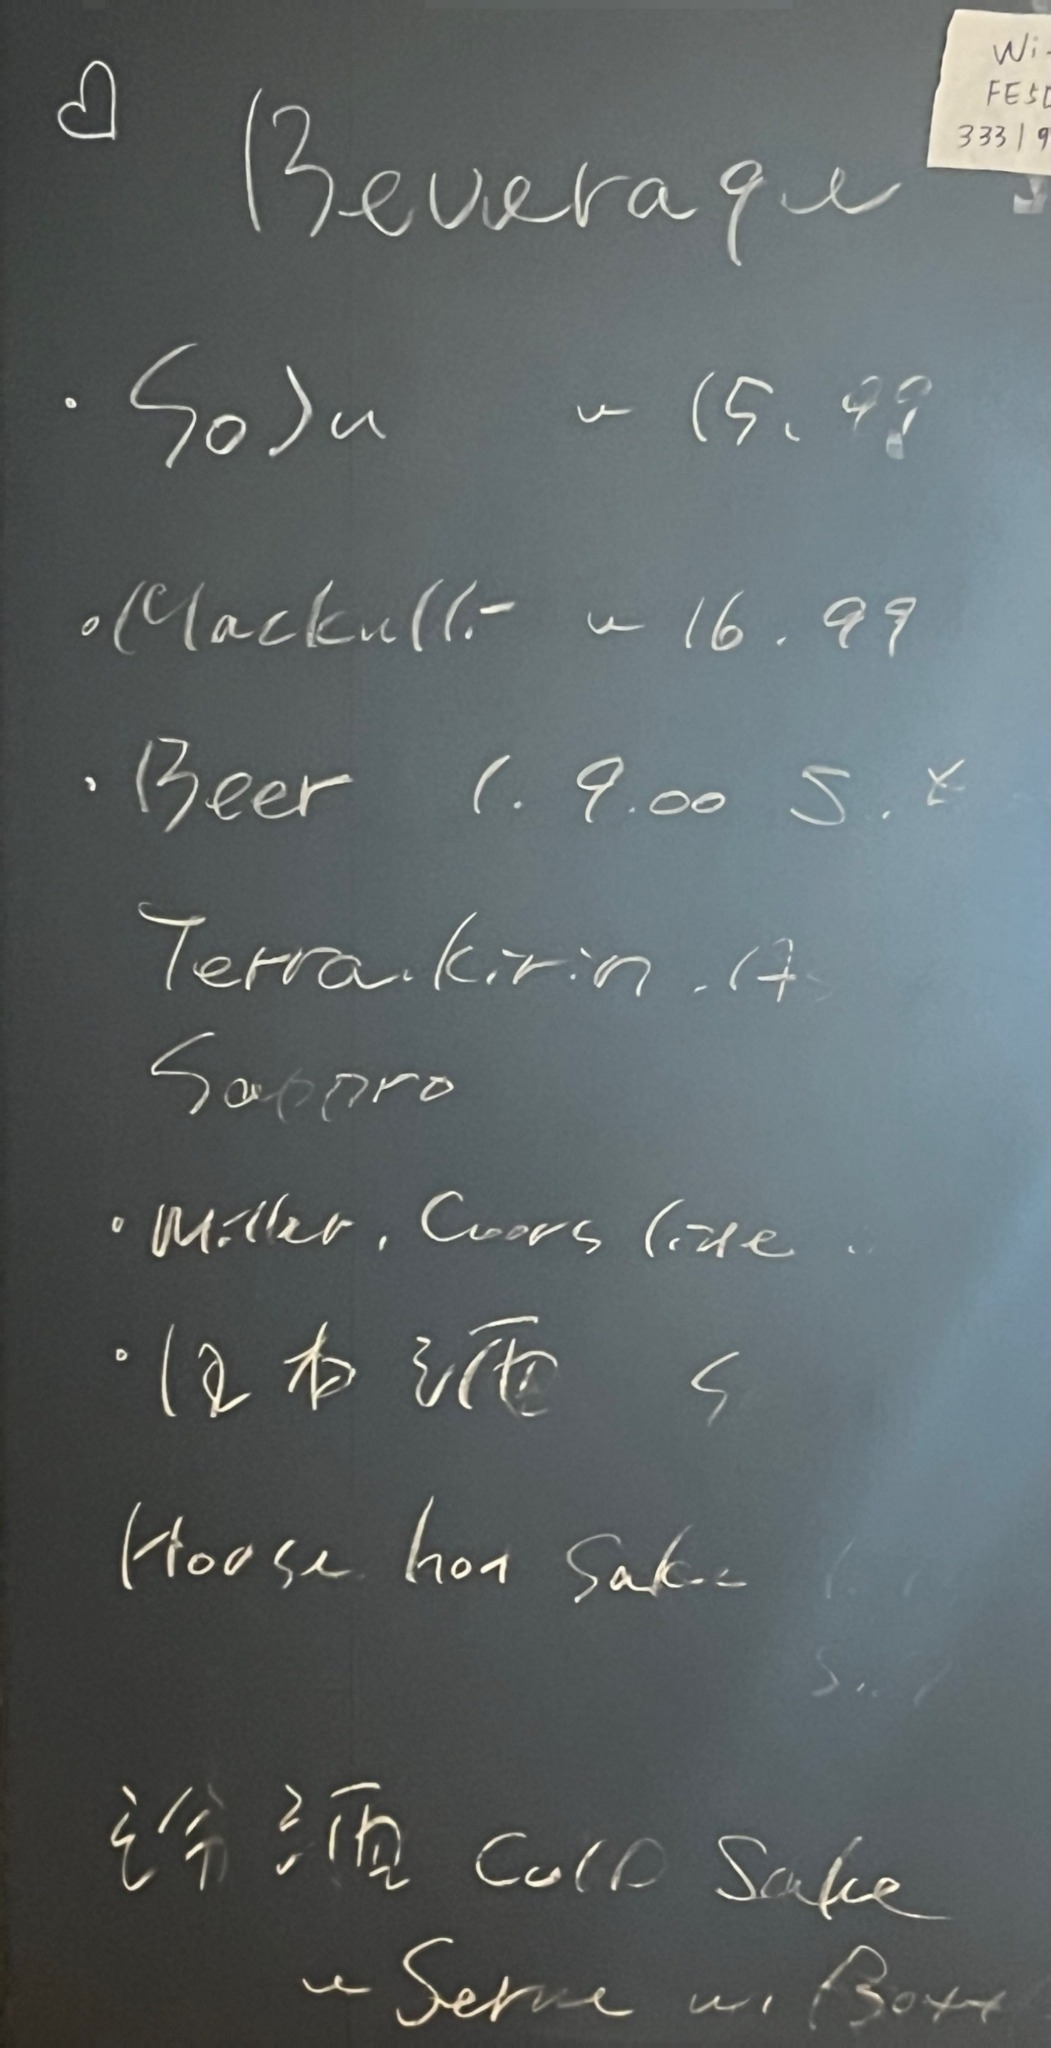 Wi-
FE5
33319
Beverage
· SoJu ~ 15.99
· Mackulli ~ 16.99
· Beer L. 9.00 S.
Terra. Kirin.
Sapporo
· Miller, Coors lite
· 日本酒 S
House hot Sake
冷酒 Cold Sake
~ Serve w. Box